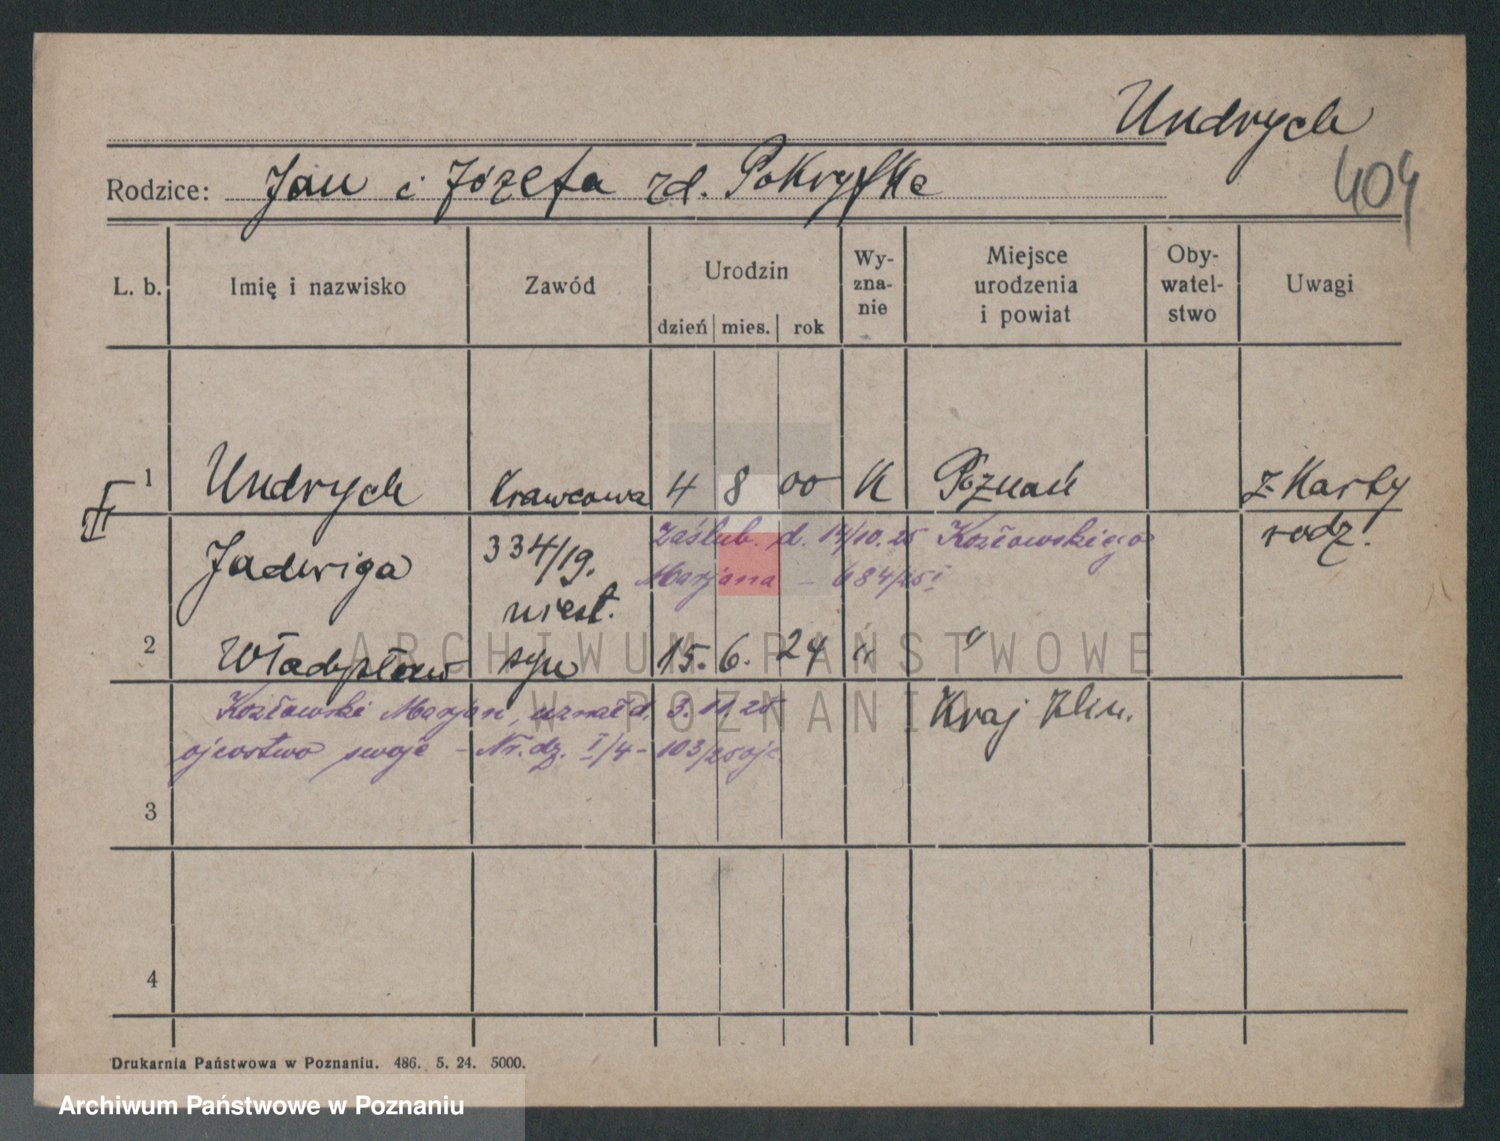 Undrych
404
Rodzice: Jan i Józefa zd. Pokryfke
L. b. Imię i nazwisko Zawód Urodzin Wy-zna-nie Miejsce urodzenia i powiat Oby-watel-stwo Uwagi
dzień mies. rok
1 Undrych krawcowa 4 8 00 K Poznań z Karty
Jadwiga 334/19. rodz.
Zaślub. d. 14/10.25 Kozłowskiego
Marjana – 684/25 I
niest.
2 Władysław syn 15. 6. 24 " "
Kozłowski Marjan, uznał d. 3.11.25 Kraj
ojcostwo swoje – Nr. dz. I/4 – 103/25
3
4
Drukarnia Państwowa w Poznaniu. 486. 5. 24. 5000.
ARCHIWUM PAŃSTWOWE
W POZNANIU
Archiwum Państwowe w Poznaniu